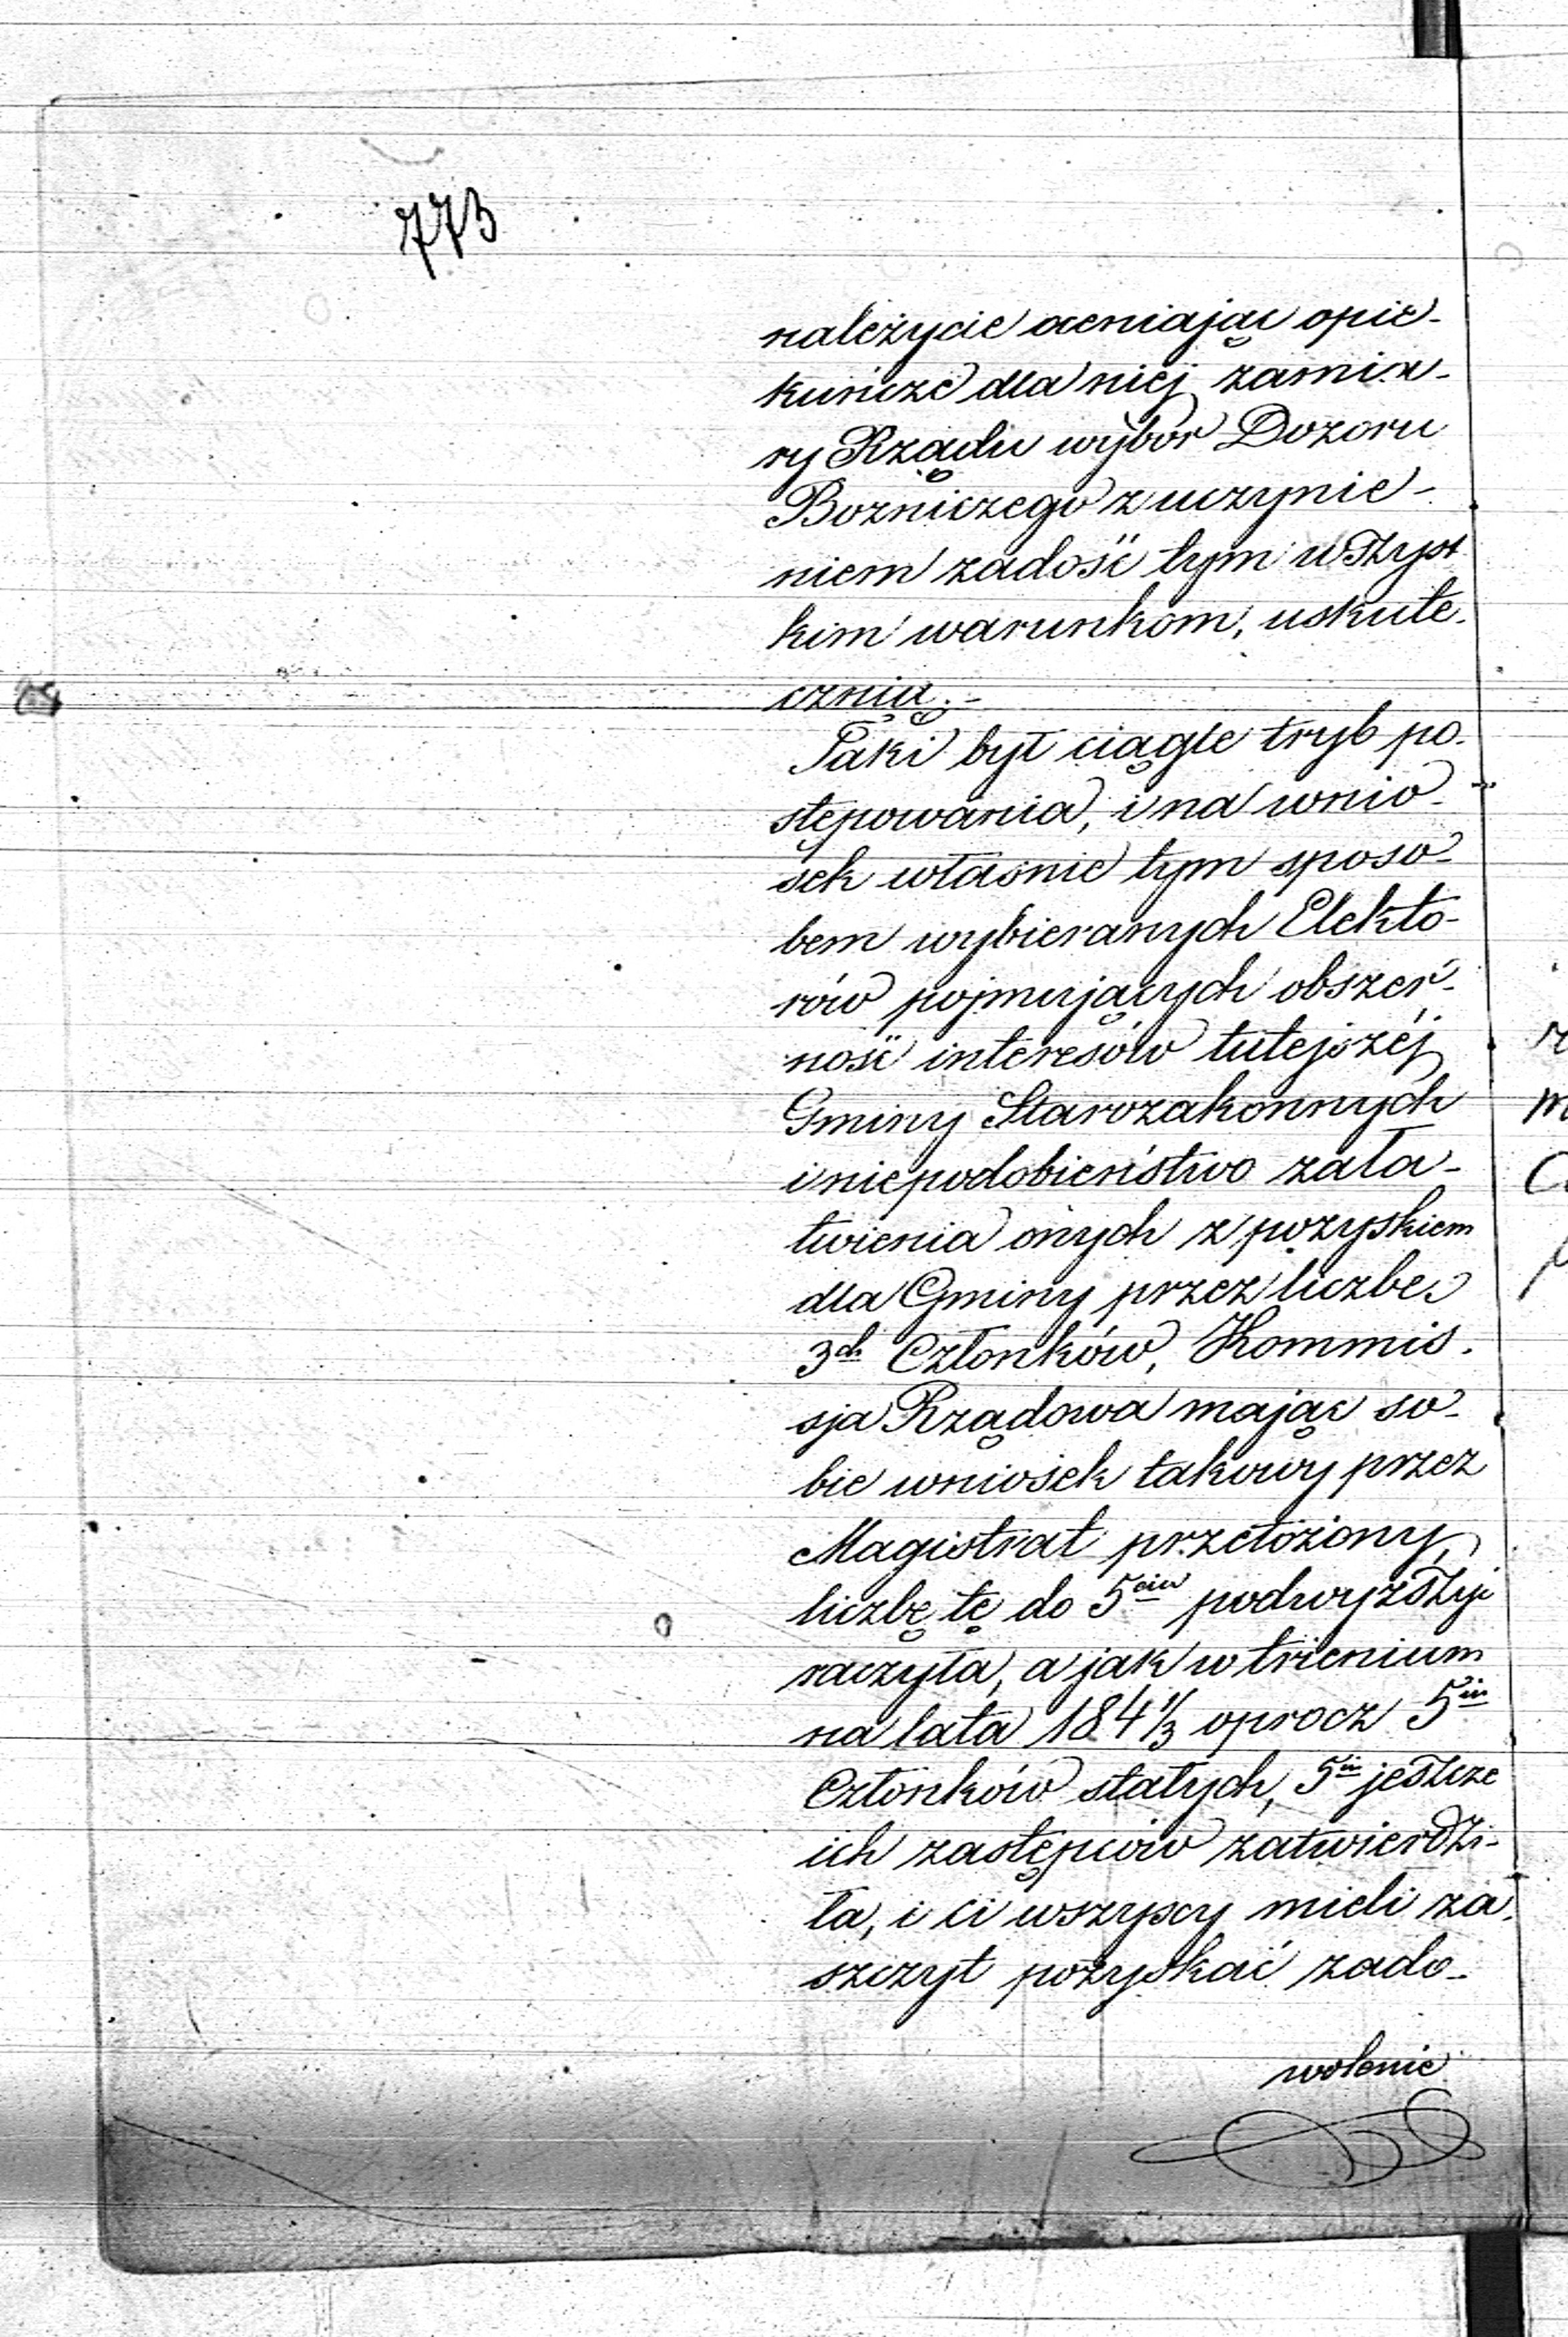 773
należycie oceniając opie-
kuńcze dla niej zamia-
ry Rządu wybór Dozoru
Bożniczego z uczynie-
niem zadość tym wszyst
kim warunkom, uskute-
cznią.-
Taki był ciągle tryb po-
stępowania, i na wnio-
sek własnie tym sposo-
bem wybieranych Elekto-
rów pojmujących obszer-
ność interesów tutejszéj
Gminy Starozakonnych
i niepodobieństwo zała-
twienia onych z pozyskiem
dla Gminy przez liczbę
3ch Członków, Kommis-
sja Rządowa mając so-
bie wniosek takowy przez
Magistrat przełożony,
liczbę tę do 5ciu podwyższyć
raczyła, a jak w trienium
na lata 184 1/3 oprocz 5iu
Członków stałych, 5iu jeszcze
ich zastępców zatwierdzi-
ła, i ci wszyscy mieli za-
szczyt pozyskać zado-
wolenie